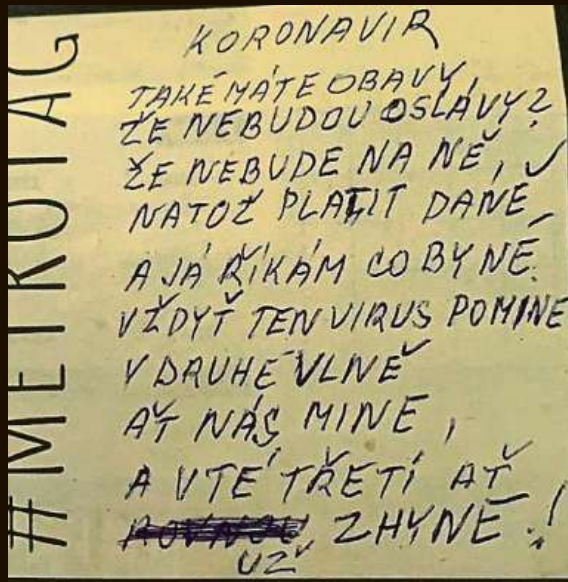 #METROTAG
KORONAVIR
TAKÉ MÁTE OBAVY,
ŽE NEBUDOU OSLAVY?
ŽE NEBUDE NA NĚ,
NATOŽ PLATIT DANĚ,
A JÁ ŘÍKÁM CO BY NÉ.
VŽDYŤ TEN VIRUS POMINE
V DRUHÉ VLNĚ
AŤ NÁS MINE,
A V TÉ TŘETÍ AŤ
ZHYNE!
UŽ